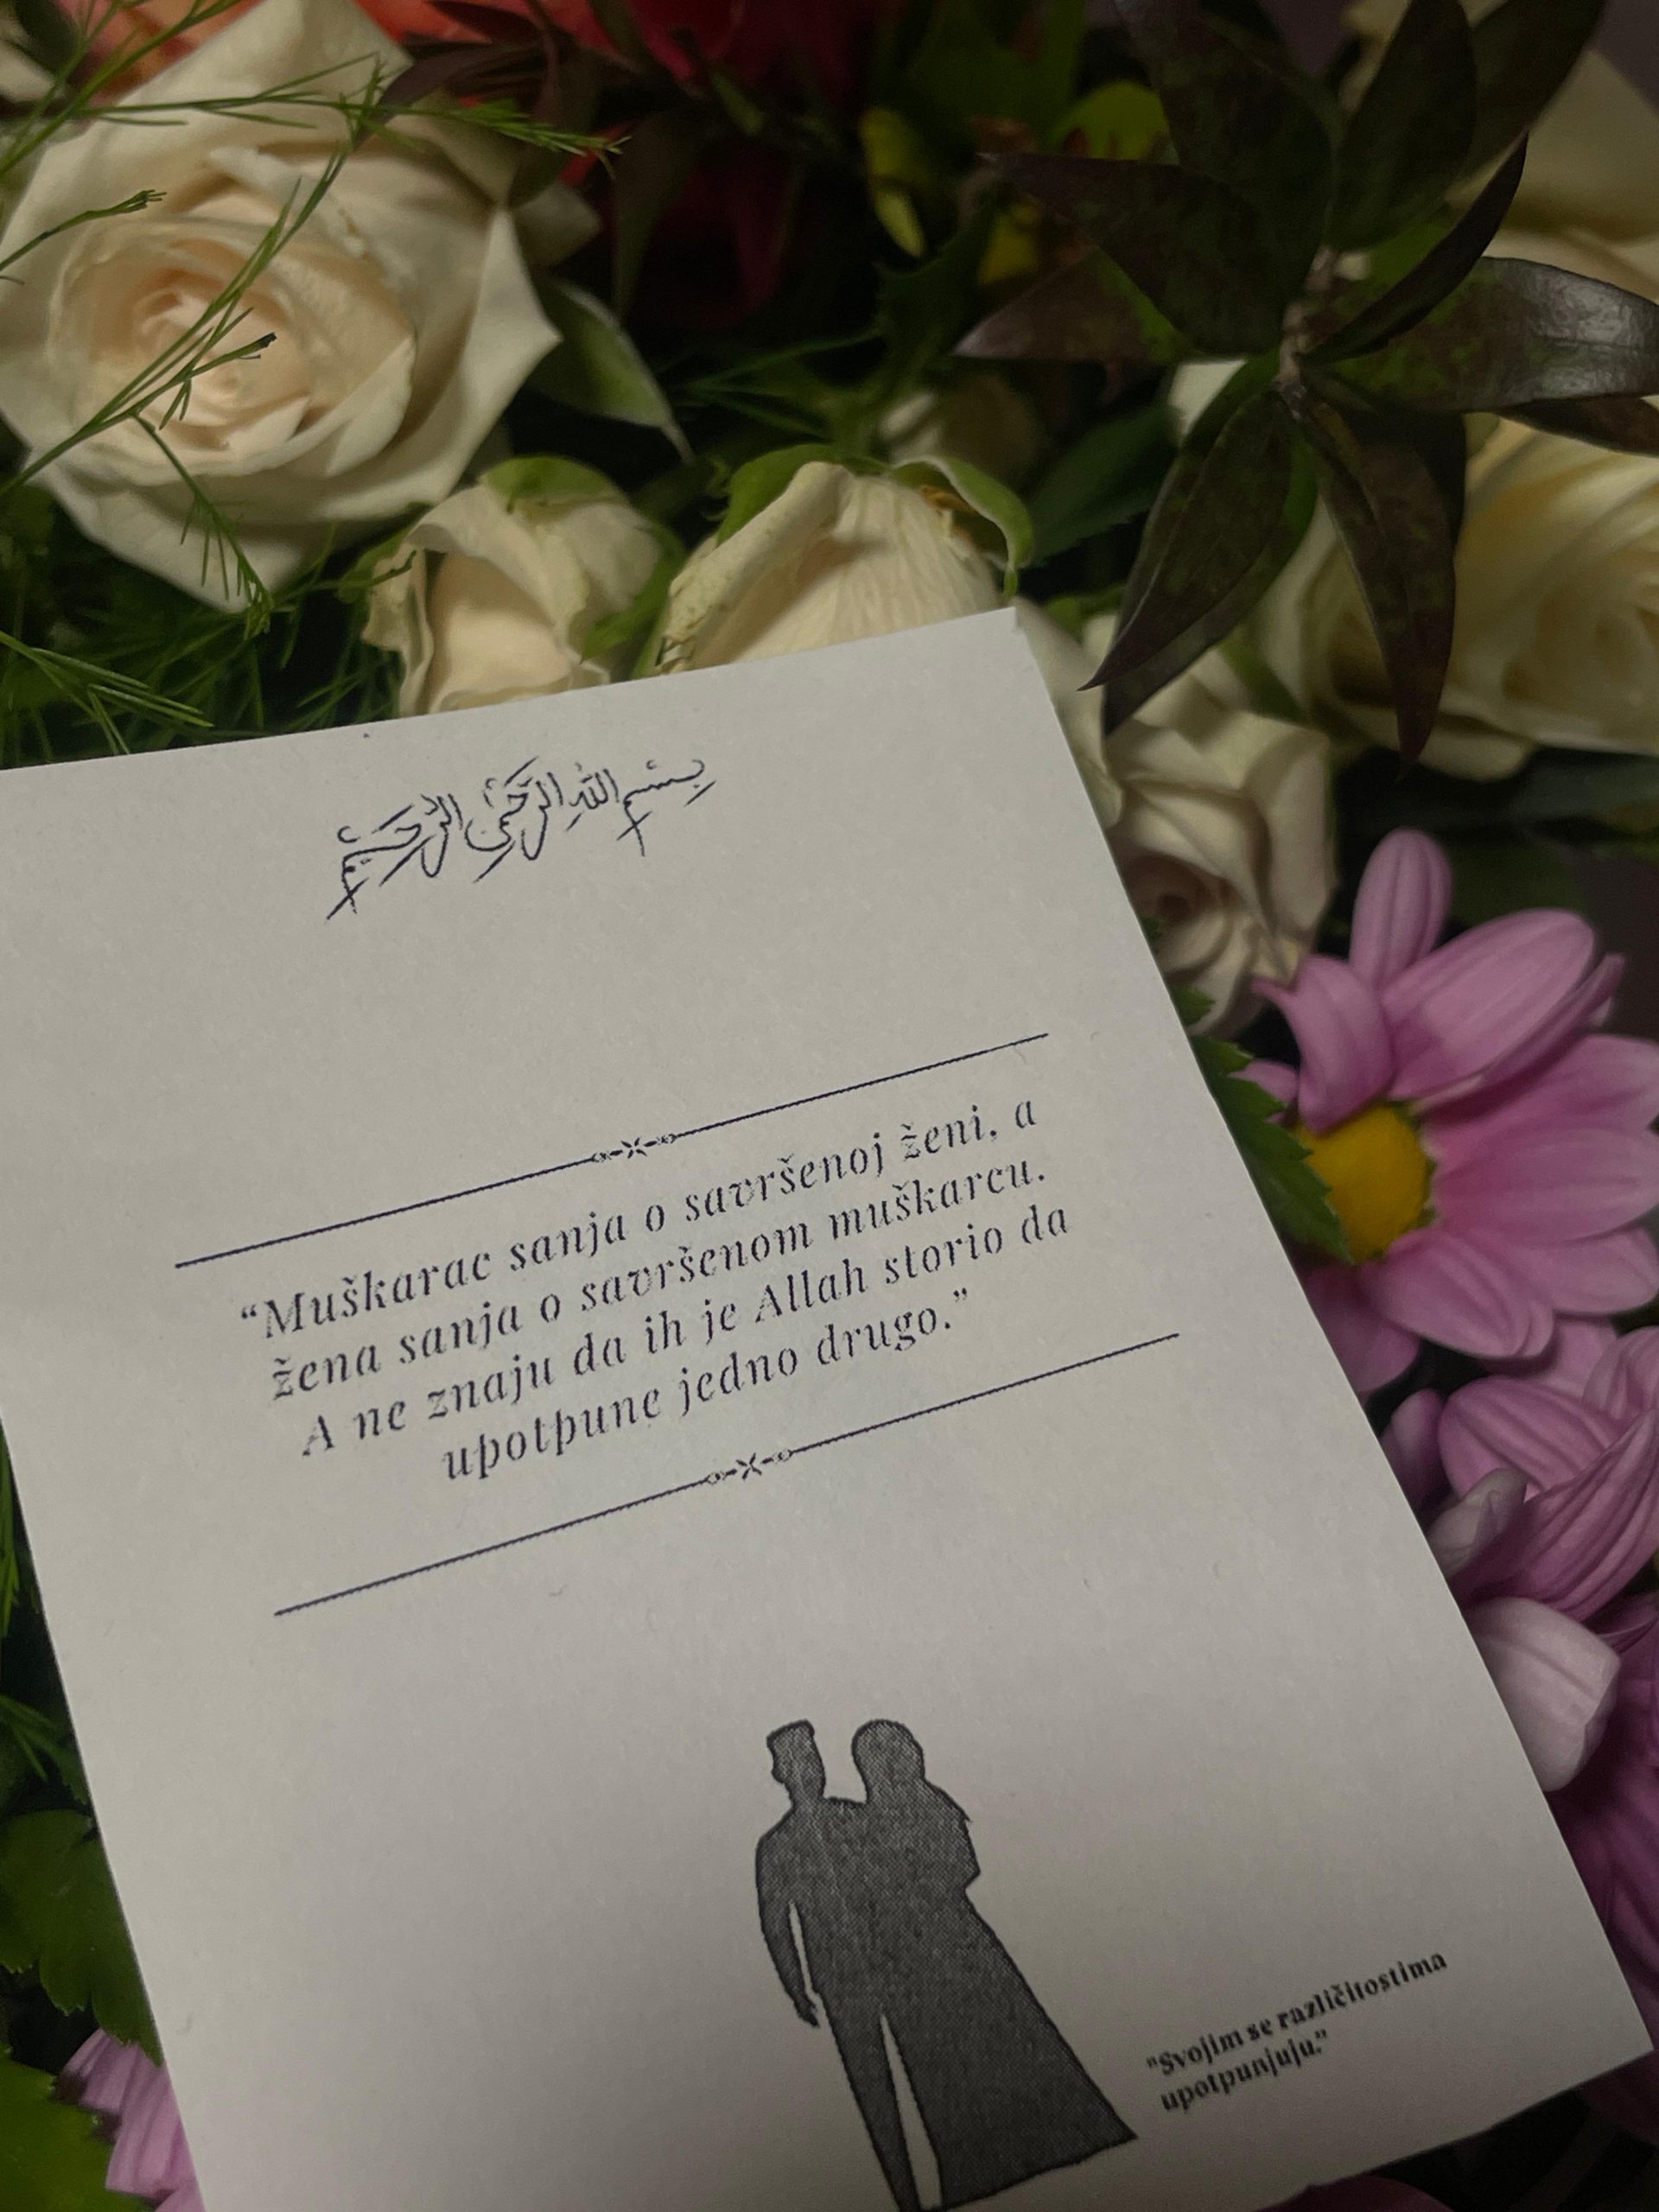 بِسْمِ اللهِ الرَّحْمٰنِ الرَّحِيْمِ
“Muškarac sanja o savršenoj ženi, a
žena sanja o savršenom muškarcu.
A ne znaju da ih je Allah storio da
upotpune jedno drugo.”
"Svojim se različitostima
upotpunjuju."